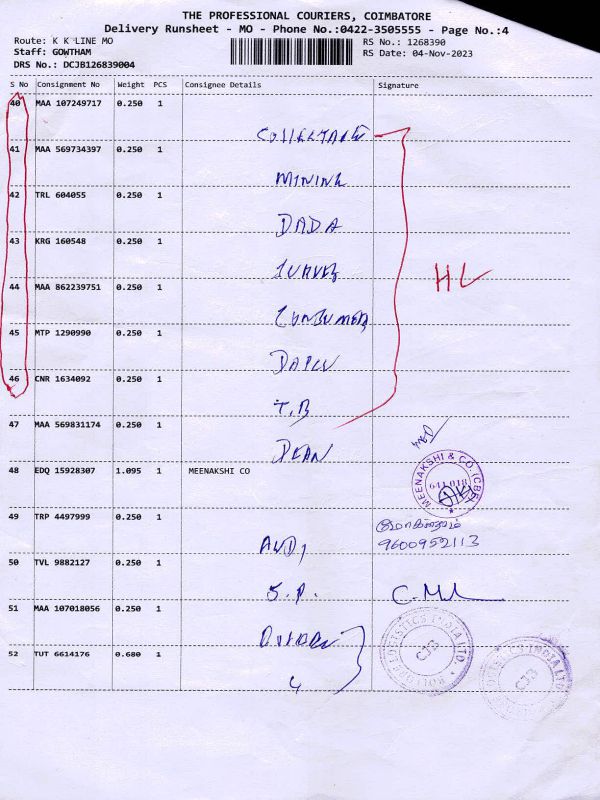 THE PROFESSIONAL COURIERS, COIMBATORE
Delivery Runsheet - MO - Phone No.:0422-3505555 - Page No.:4
Route: K K LINE MO
RS No.: 1268390
Staff: GOWTHAM
RS Date: 04-Nov-2023
DRS No.: DCJB126839004
S No Consignment No Weight PCS Consignee Details Signature
40 MAA 107249717 0.250 1
41 MAA 569734397 0.250 1
MINING
42 TRL 604055 0.250 1
DADA
43 KRG 160548 0.250 1
HL
44 MAA 862239751 0.250 1
CONSUMER
45 MTP 1290990 0.250 1
46 CNR 1634092 0.250 1
T.B
47 MAA 569831174 0.250 1
DEAN
48 EDQ 15928307 1.095 1 MEENAKSHI CO
MEENAKSHI & CO. (CBE)
641 018
49 TRP 4497999 0.250 1
9600952113
50 TVL 9882127 0.250 1
S.P.
51 MAA 107018056 0.250 1
52 TUT 6614176 0.680 1
LOGISTICS INDIA LTD.
CJB
LOGISTICS INDIA LTD
CJB